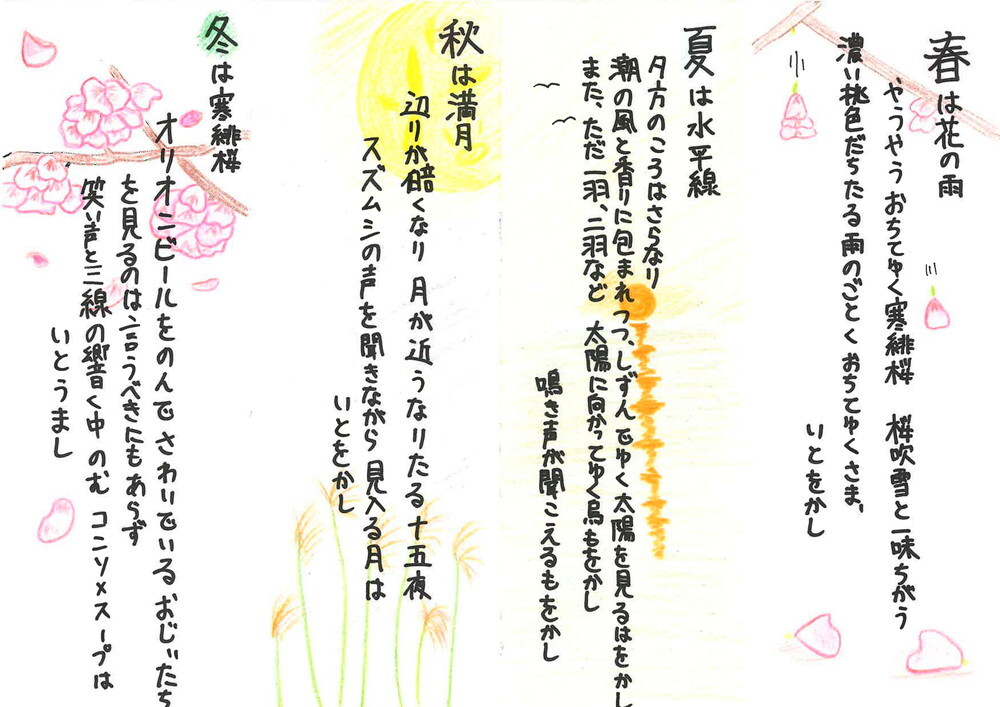 春は花の雨
やうやうおちてゆく寒緋桜　桜吹雪と一味ちがう
濃い桃色だちたる雨のごとくおちてゆくさま、
いとをかし
夏は水平線
夕方のころはさらなり
潮の風と香りに包まれつつ、しずんでゆく太陽を見るはをかし
また、ただ一羽、二羽など　太陽に向かってゆく鳥もをかし
鳴き声が聞こえるもをかし
秋は満月
辺りが暗くなり　月が近うなりたる十五夜
スズムシの声を聞きながら見入る月は
いとをかし
冬は寒緋桜
オリオンビールをのんでさわいでいるおじぃたち
を見るのは言うべきにもあらず
笑い声と三線の響く中のむ　コンソメスープは
いとうまし